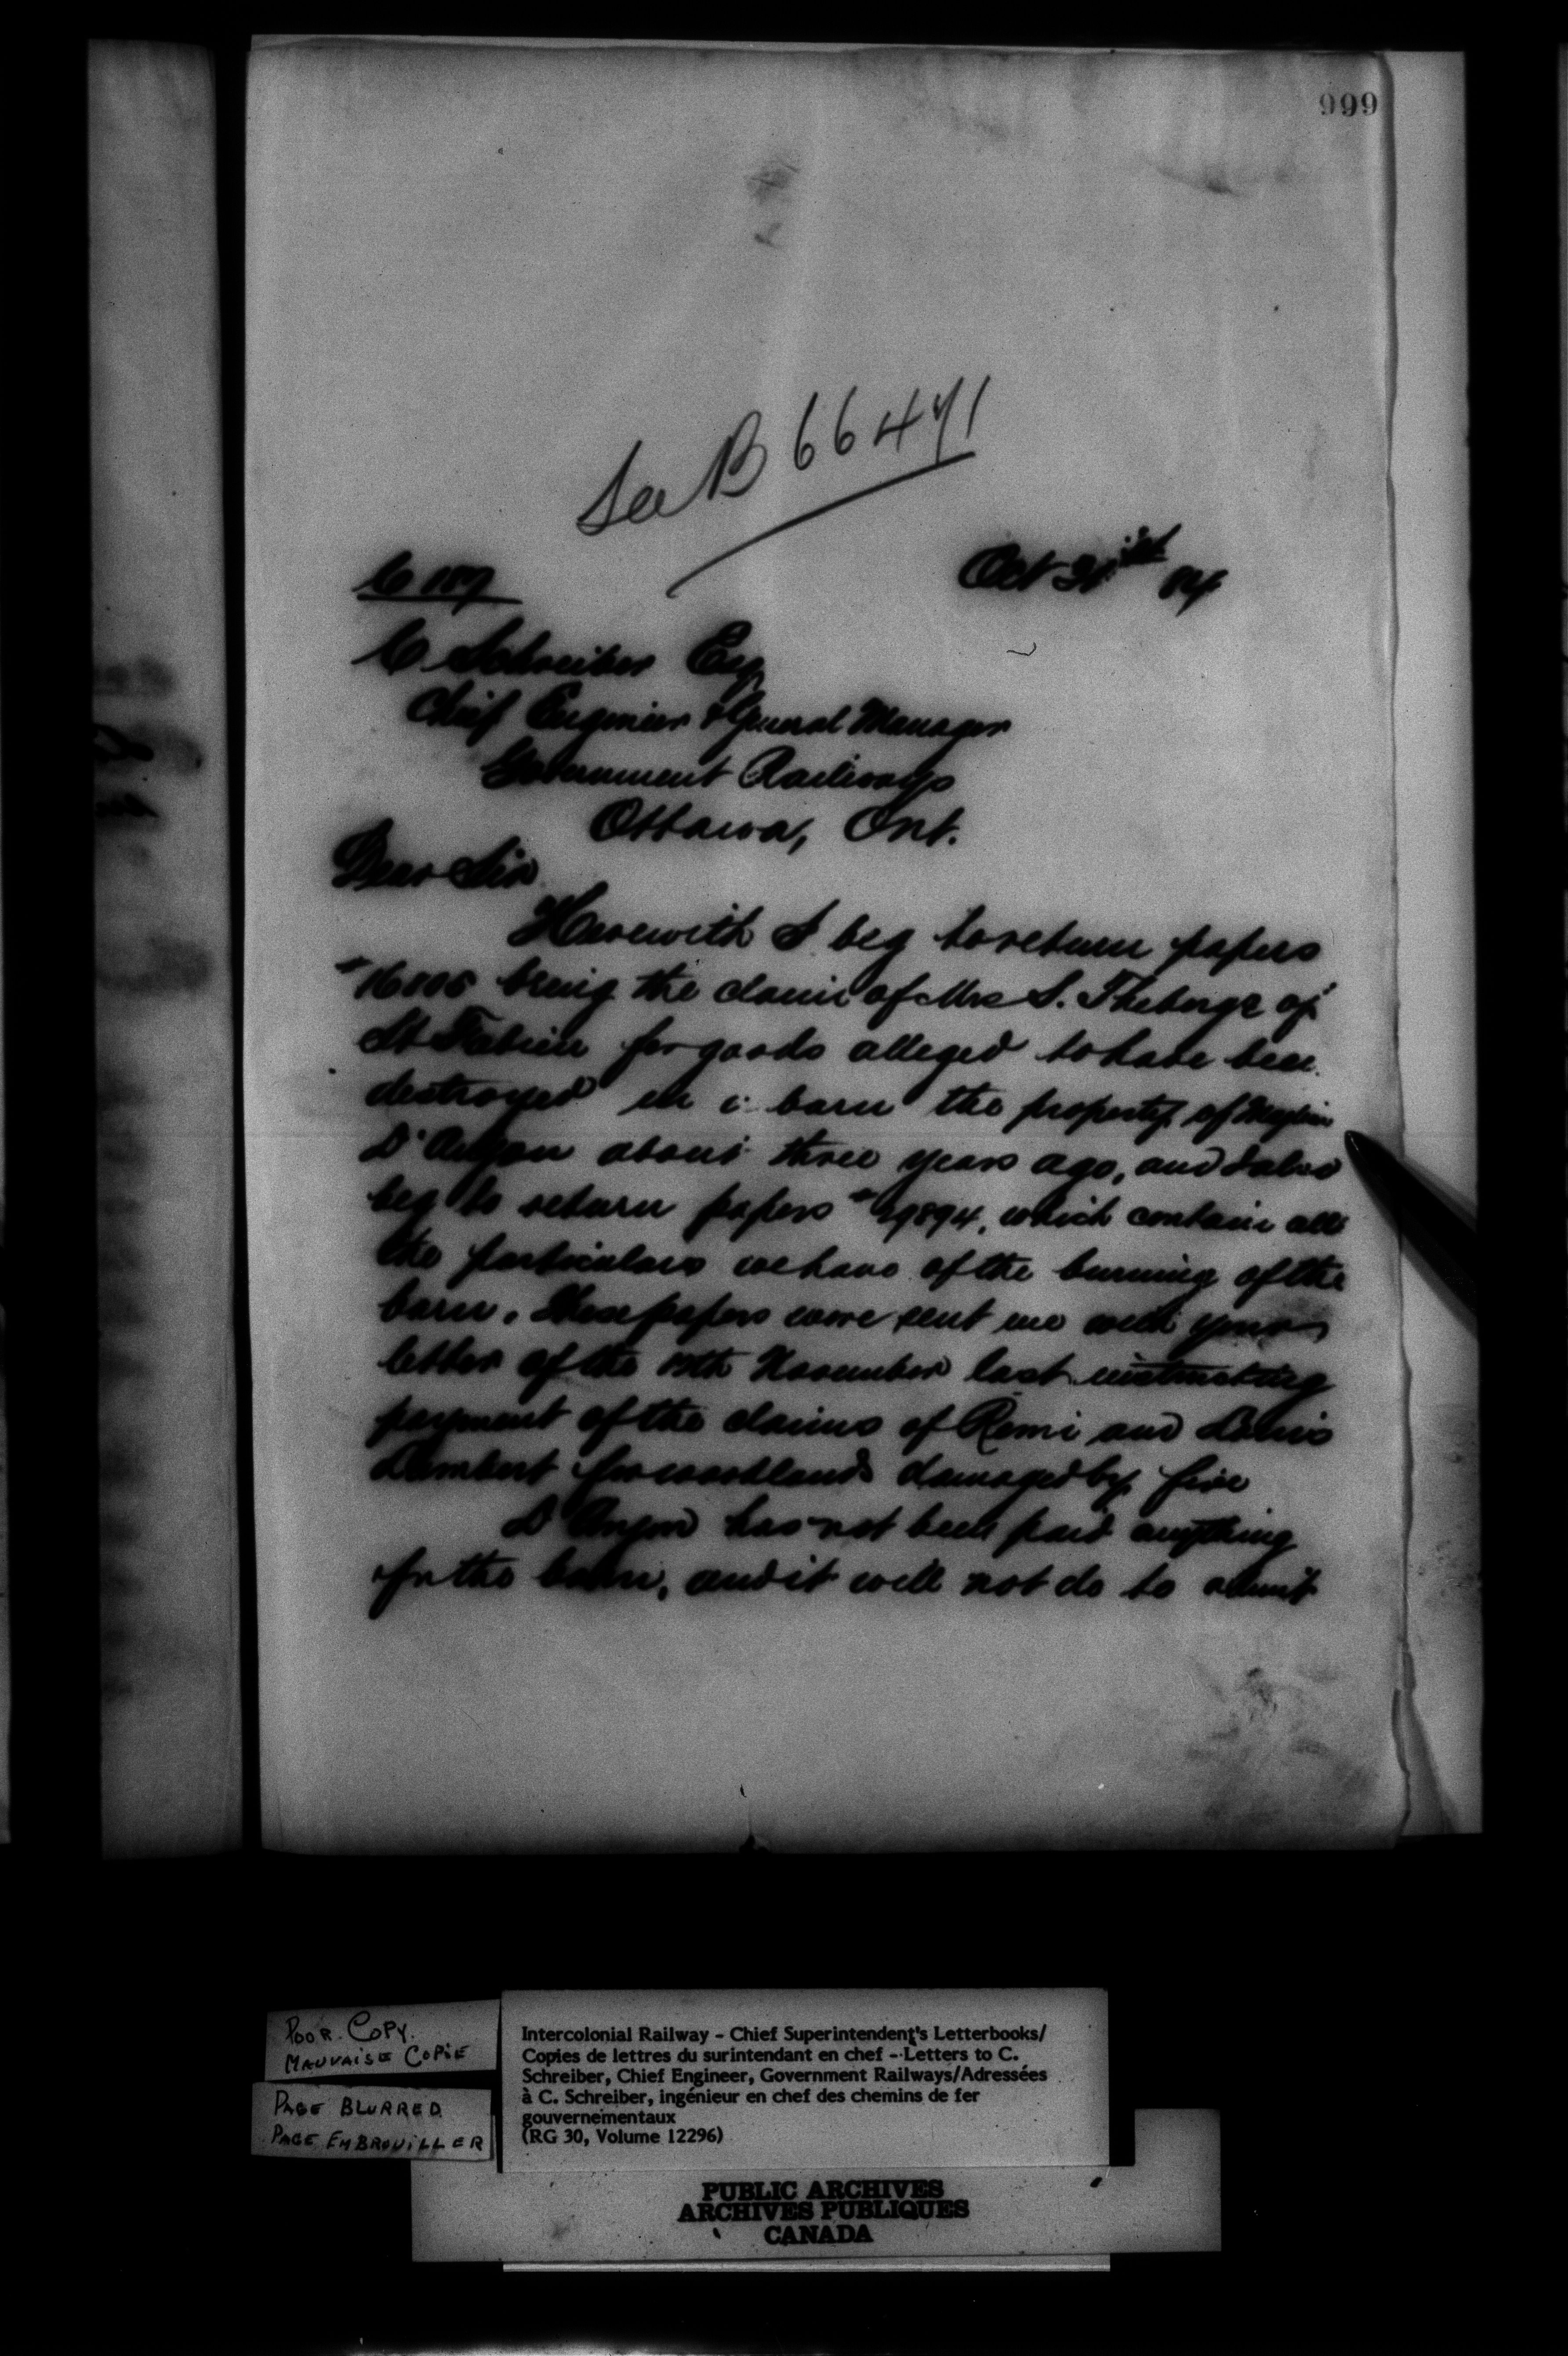 999
See B 66471
Oct 31st 84
C 187
C Schreiber Esq
Chief Engineer & General Manager
Government Railways
Ottawa, Ont.
Dear Sir
Herewith I beg to return papers
being the claim of Mrs S. Theberge of
St Fabien for goods alleged to have been
destroyed in a barn the property of
D'Anjou about three years ago, and I also
beg to return papers #29894, which contain all
the particulars we have of the burning of the
barn. These papers were sent me with your
letter of the November last instructing
payment of the claims of Remi and Louis
Lambert for woodlands damaged by fire
D'Anjou has not been paid anything
for the barn, and it will not do to admit
POOR COPY.
MAUVAISE COPIE
PAGE BLURRED
PAGE EMBROUILLER
Intercolonial Railway - Chief Superintendent's Letterbooks/
Copies de lettres du surintendant en chef - Letters to C.
Schreiber, Chief Engineer, Government Railways/Adressées
à C. Schreiber, ingénieur en chef des chemins de fer
gouvernementaux
(RG 30, Volume 12296)
PUBLIC ARCHIVES
ARCHIVES PUBLIQUES
CANADA